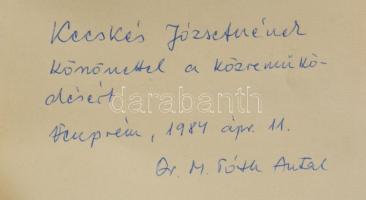 Kecskés Józsefnének
köszönettel a közremükö-
désért
Veszprém, 1984 ápr. 11.
Dr. M. Tóth Antal
darabanth